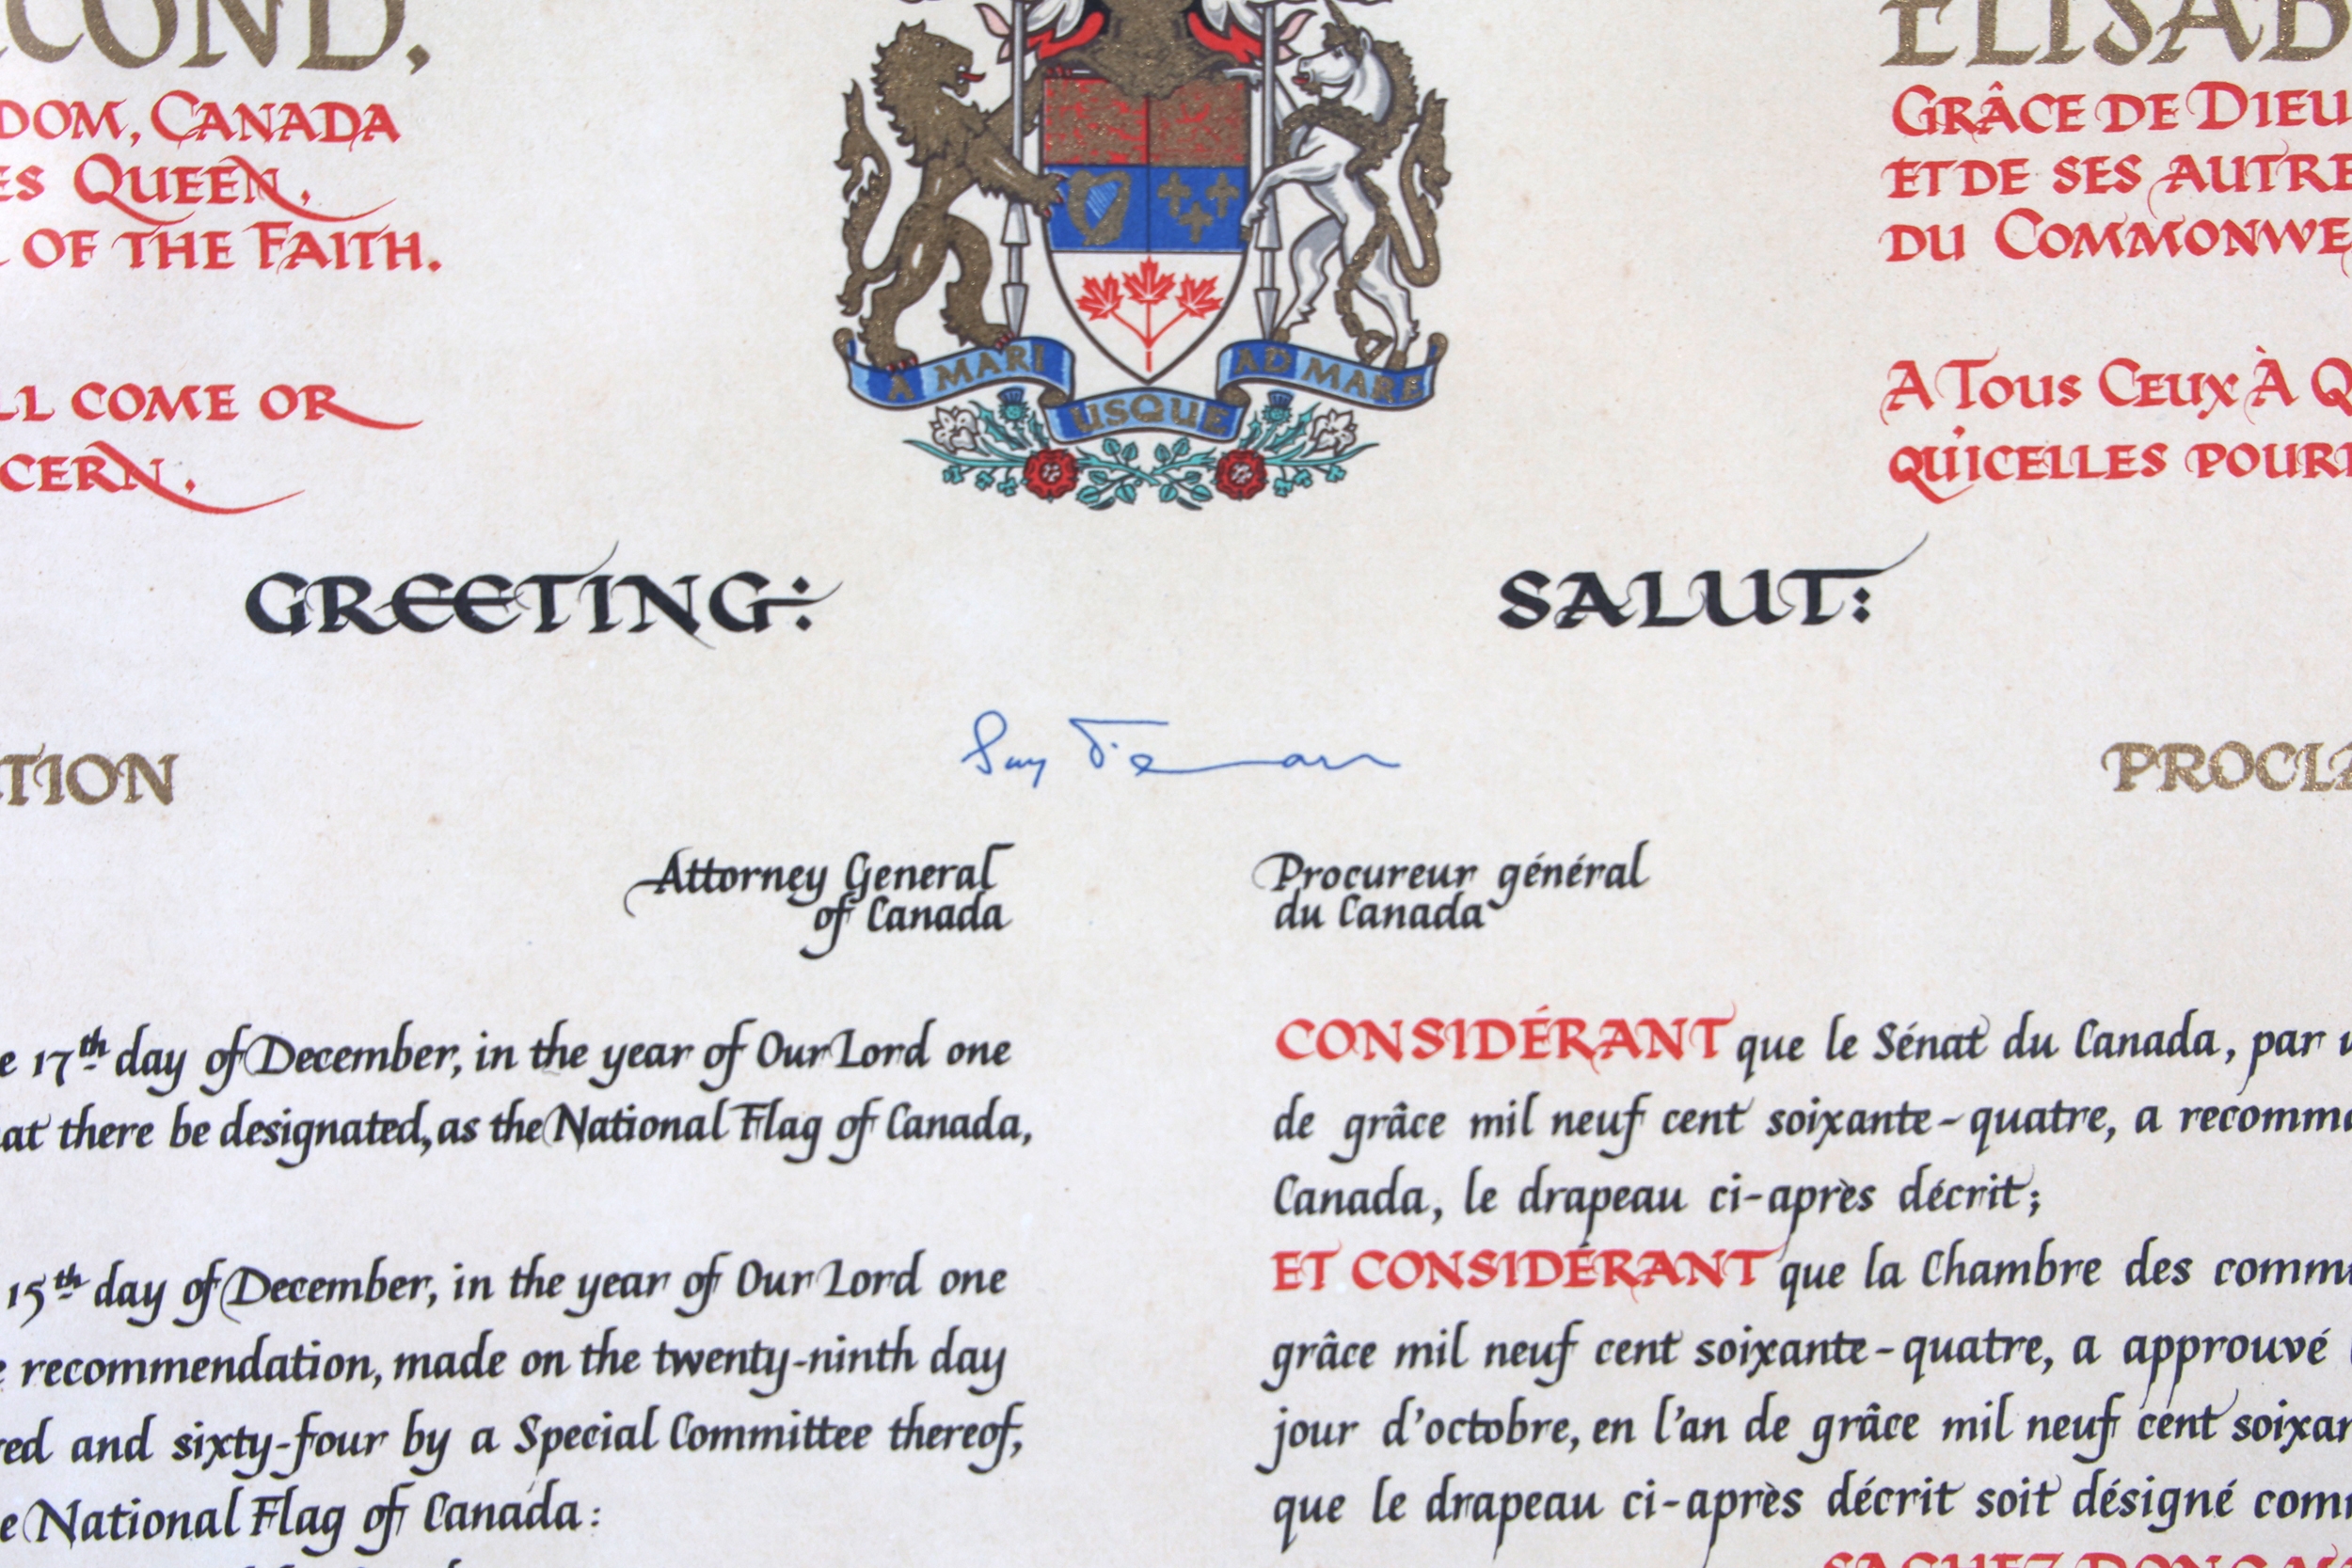 COND,
DOM, CANADA
ES QUEEN,
OF THE FAITH.
LL COME OR
CERN.
ELISAB
GRÂCE DE DIEU
ET DE SES AUTRE
DU COMMONWE
A TOUS CEUX À Q
QU'ICELLES POUR
A MARI USQUE AD MARE
GREETING:
SALUT:
TION
PROCLA
Attorney General
of Canada
Procureur général
du Canada
e 17th day of December, in the year of Our Lord one
at there be designated, as the National Flag of Canada,
15th day of December, in the year of Our Lord one
e recommendation, made on the twenty-ninth day
red and sixty-four by a Special Committee thereof,
e National Flag of Canada:
CONSIDÉRANT que le Sénat du Canada, par u
de grâce mil neuf cent soixante-quatre, a recomma
Canada, le drapeau ci-après décrit;
ET CONSIDÉRANT que la Chambre des commu
grâce mil neuf cent soixante-quatre, a approuvé
jour d'octobre, en l'an de grâce mil neuf cent soixan
que le drapeau ci-après décrit soit désigné comm